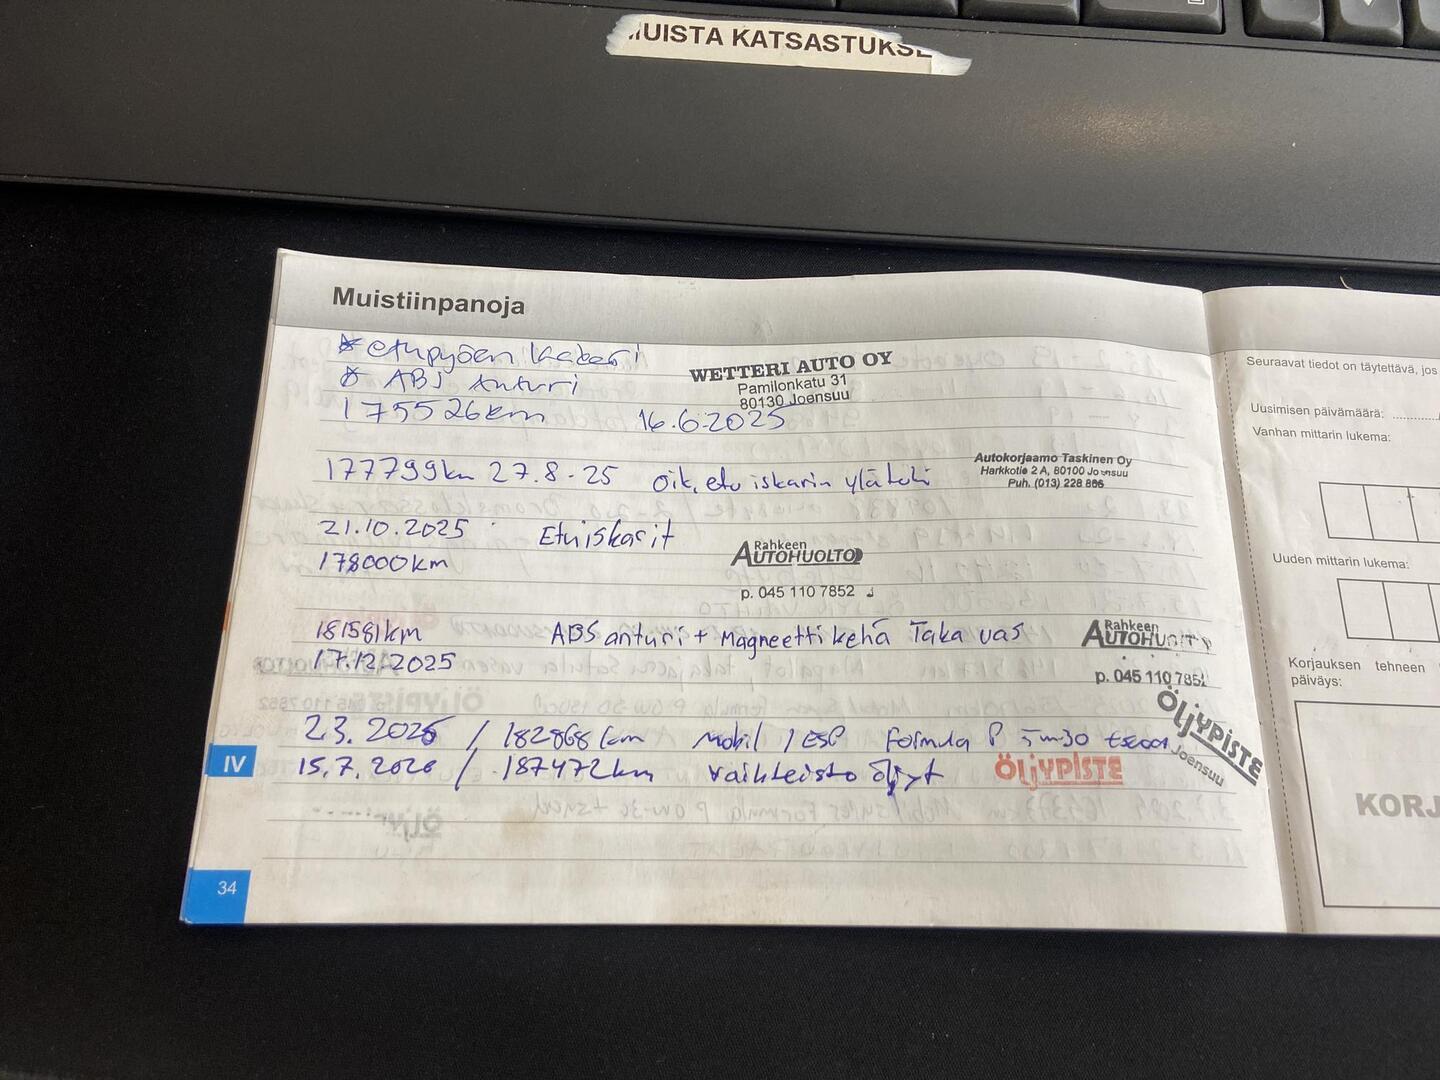 UISTA KATSASTUKSE
Muistiinpanoja
* etupyörän laakeri
* ABS anturi
175526km 16.6.2025
WETTERI AUTO OY
Pamilonkatu 31
80130 Joensuu
177799km 27.8-25 oik. etu iskarin ylätuki
Autokorjaamo Taskinen Oy
Harkkotie 2 A, 80100 Joensuu
Puh. (013) 228 866
21.10.2025 Etuiskarit
178000km
Rahkeen
AUTOHUOLTO
p. 045 110 7852
181581km ABS anturi + Magneettikehä Taka vas
17.12.2025
Rahkeen
AUTOHUOLTO
p. 045 110 7852
2.3.2026 / 182868km Mobil 1 ESP Formula P 5w30
ÖljyPISTE
Joensuu
15.7.2026 / 187472km vaihteisto öljyt
ÖljyPISTE
IV
34
Seuraavat tiedot on täytettävä, jos
Uusimisen päivämäärä: ............
Vanhan mittarin lukema:
Uuden mittarin lukema:
Korjauksen tehneen
päiväys:
KORJ